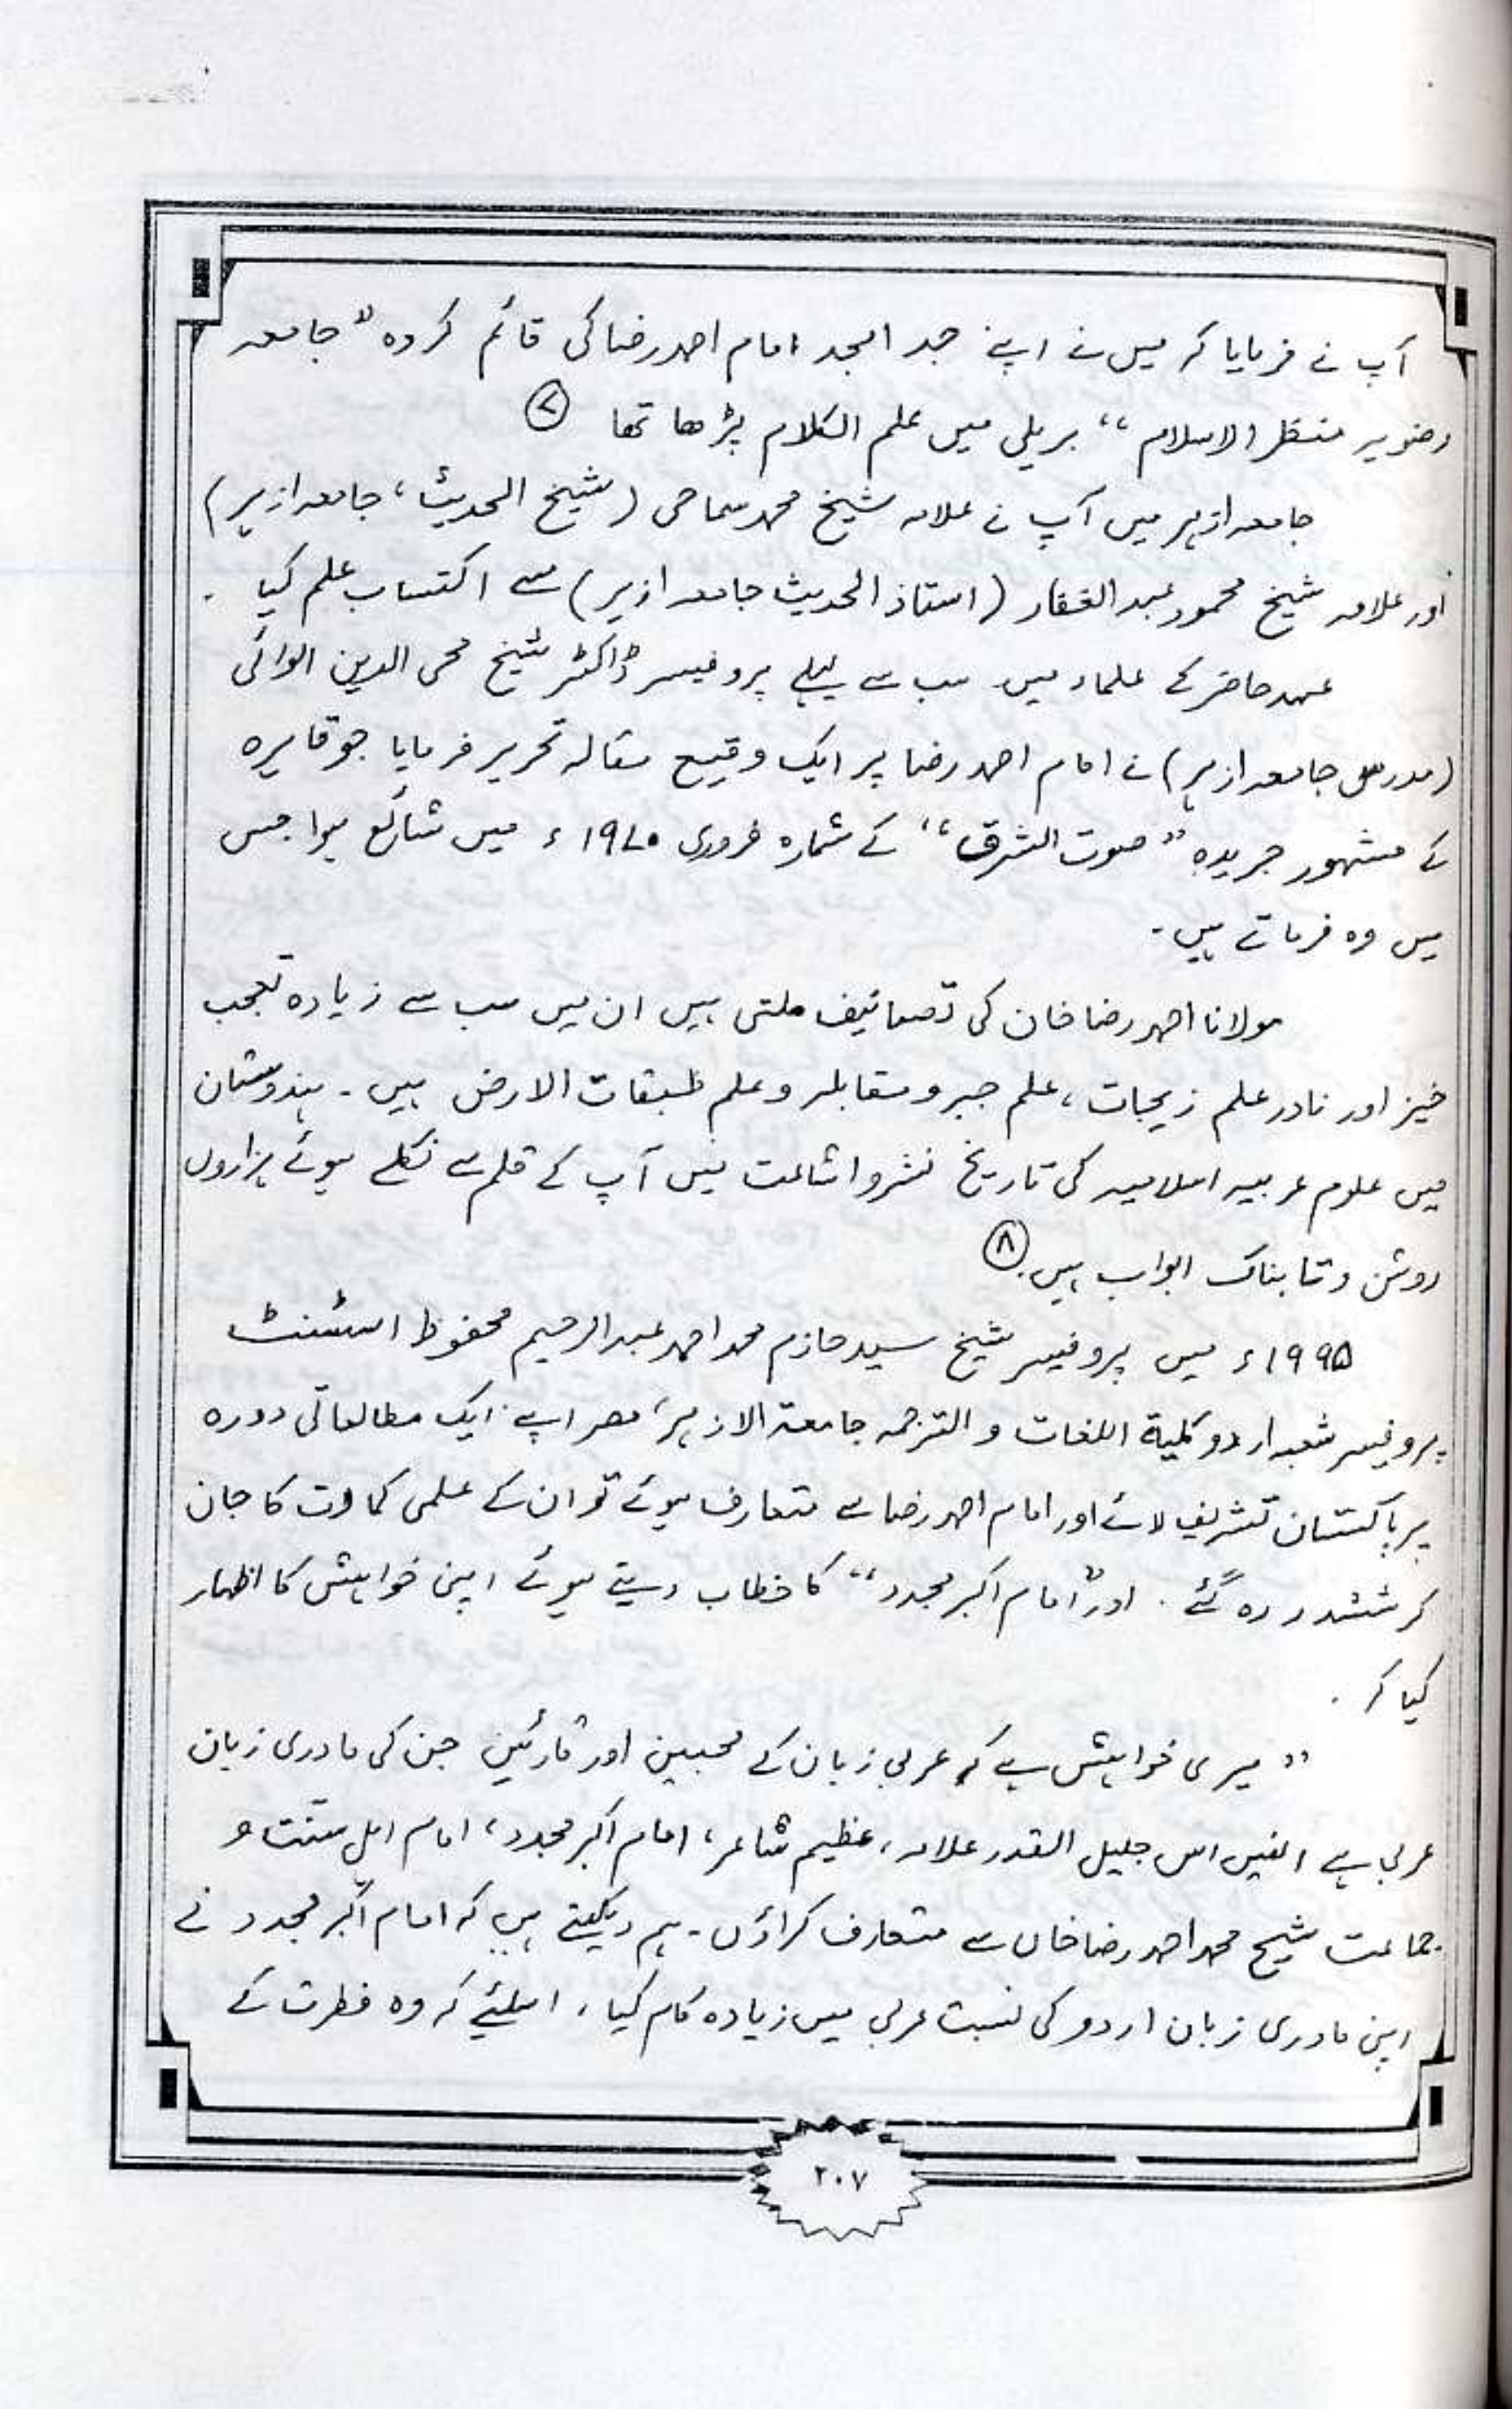 آپ نے فرمایا کہ میں نے اپنے جد امجد امام احمد رضا کی قائم کردہ "جامعہ
رضویہ منظر الاسلام" بریلی میں علم الکلام پڑھا تھا ⑦
جامعہ ازہر میں آپ نے علامہ شیخ محمد سماحی (شیخ الحدیث، جامعہ ازہر)
اور علامہ شیخ محمود عبدالغفار (استاذ الحدیث جامعہ ازہر) سے اکتساب علم کیا ۔
عہد حاضر کے علماء میں سب سے پہلے پروفیسر ڈاکٹر شیخ محی الدین الوائی
(مدرس جامعہ ازہر) نے امام احمد رضا پر ایک وقیع مقالہ تحریر فرمایا جو قاہرہ
کے مشہور جریدہ "صوت الشرق" کے شمارہ فروری ۱۹۷۰ء میں شائع ہوا جس
میں وہ فرماتے ہیں ۔
مولانا احمد رضا خان کی تصانیف ملتی ہیں ان میں سب سے زیادہ تعجب
خیز اور نادر علم زیجات، علم جبر و مقابلہ و علم طبقات الارض ہیں ۔ ہندوستان
میں علوم عربیہ اسلامیہ کی تاریخ نشر و اشاعت میں آپ کے قلم سے نکلے ہوئے ہزاروں
روشن و تابناک ابواب ہیں ۔ ⑧
۱۹۹۵ء میں پروفیسر شیخ سید حازم محمد احمد عبدالرحیم محفوظ اسٹنٹ
پروفیسر شعبہ اردو کلیۃ اللغات و الترجمہ جامعۃ الازہر، مصر اپنے ایک مطالعاتی دورہ
پر پاکستان تشریف لائے اور امام احمد رضا سے متعارف ہوئے تو ان کے علمی کمالات کا جان
کر ششدر رہ گئے ۔ اور "امام اکبر مجدد" کا خطاب دیتے ہوئے اپنی خواہش کا اظہار
کیا کہ ۔
"میری خواہش ہے کہ عربی زبان کے محبین اور قارئین جن کی مادری زبان
عربی ہے انہیں اس جلیل القدر علامہ، عظیم شاعر، امام اکبر مجدد، امام اہل سنت و
جماعت شیخ محمد احمد رضا خاں سے متعارف کراؤں ۔ ہم دیکھتے ہیں کہ امام اکبر مجدد نے
اپنی مادری زبان اردو کی نسبت عربی میں زیادہ کام کیا، اسلئیے کہ وہ فطرت کے
۲۰۷